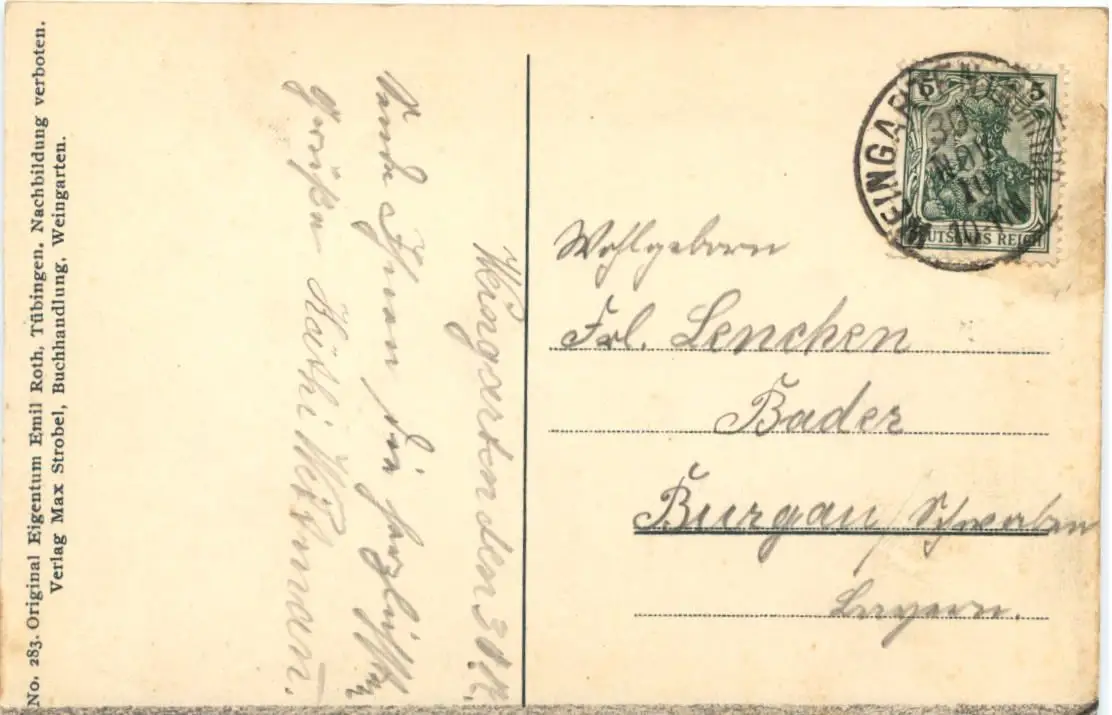 No. 283. Original Eigentum Emil Roth, Tübingen. Nachbildung verboten.
Verlag Max Strobel, Buchhandlung, Weingarten.
Weingarten den 30.
Sende Ihnen die herzlichsten
Grüße Käthi
WEINGARTEN
30
10
10-11
5 5
DEUTSCHES REICH
Wohlgeborn
Frl. Lenchen
Bader
Burgau / Schwaben
Bayern.